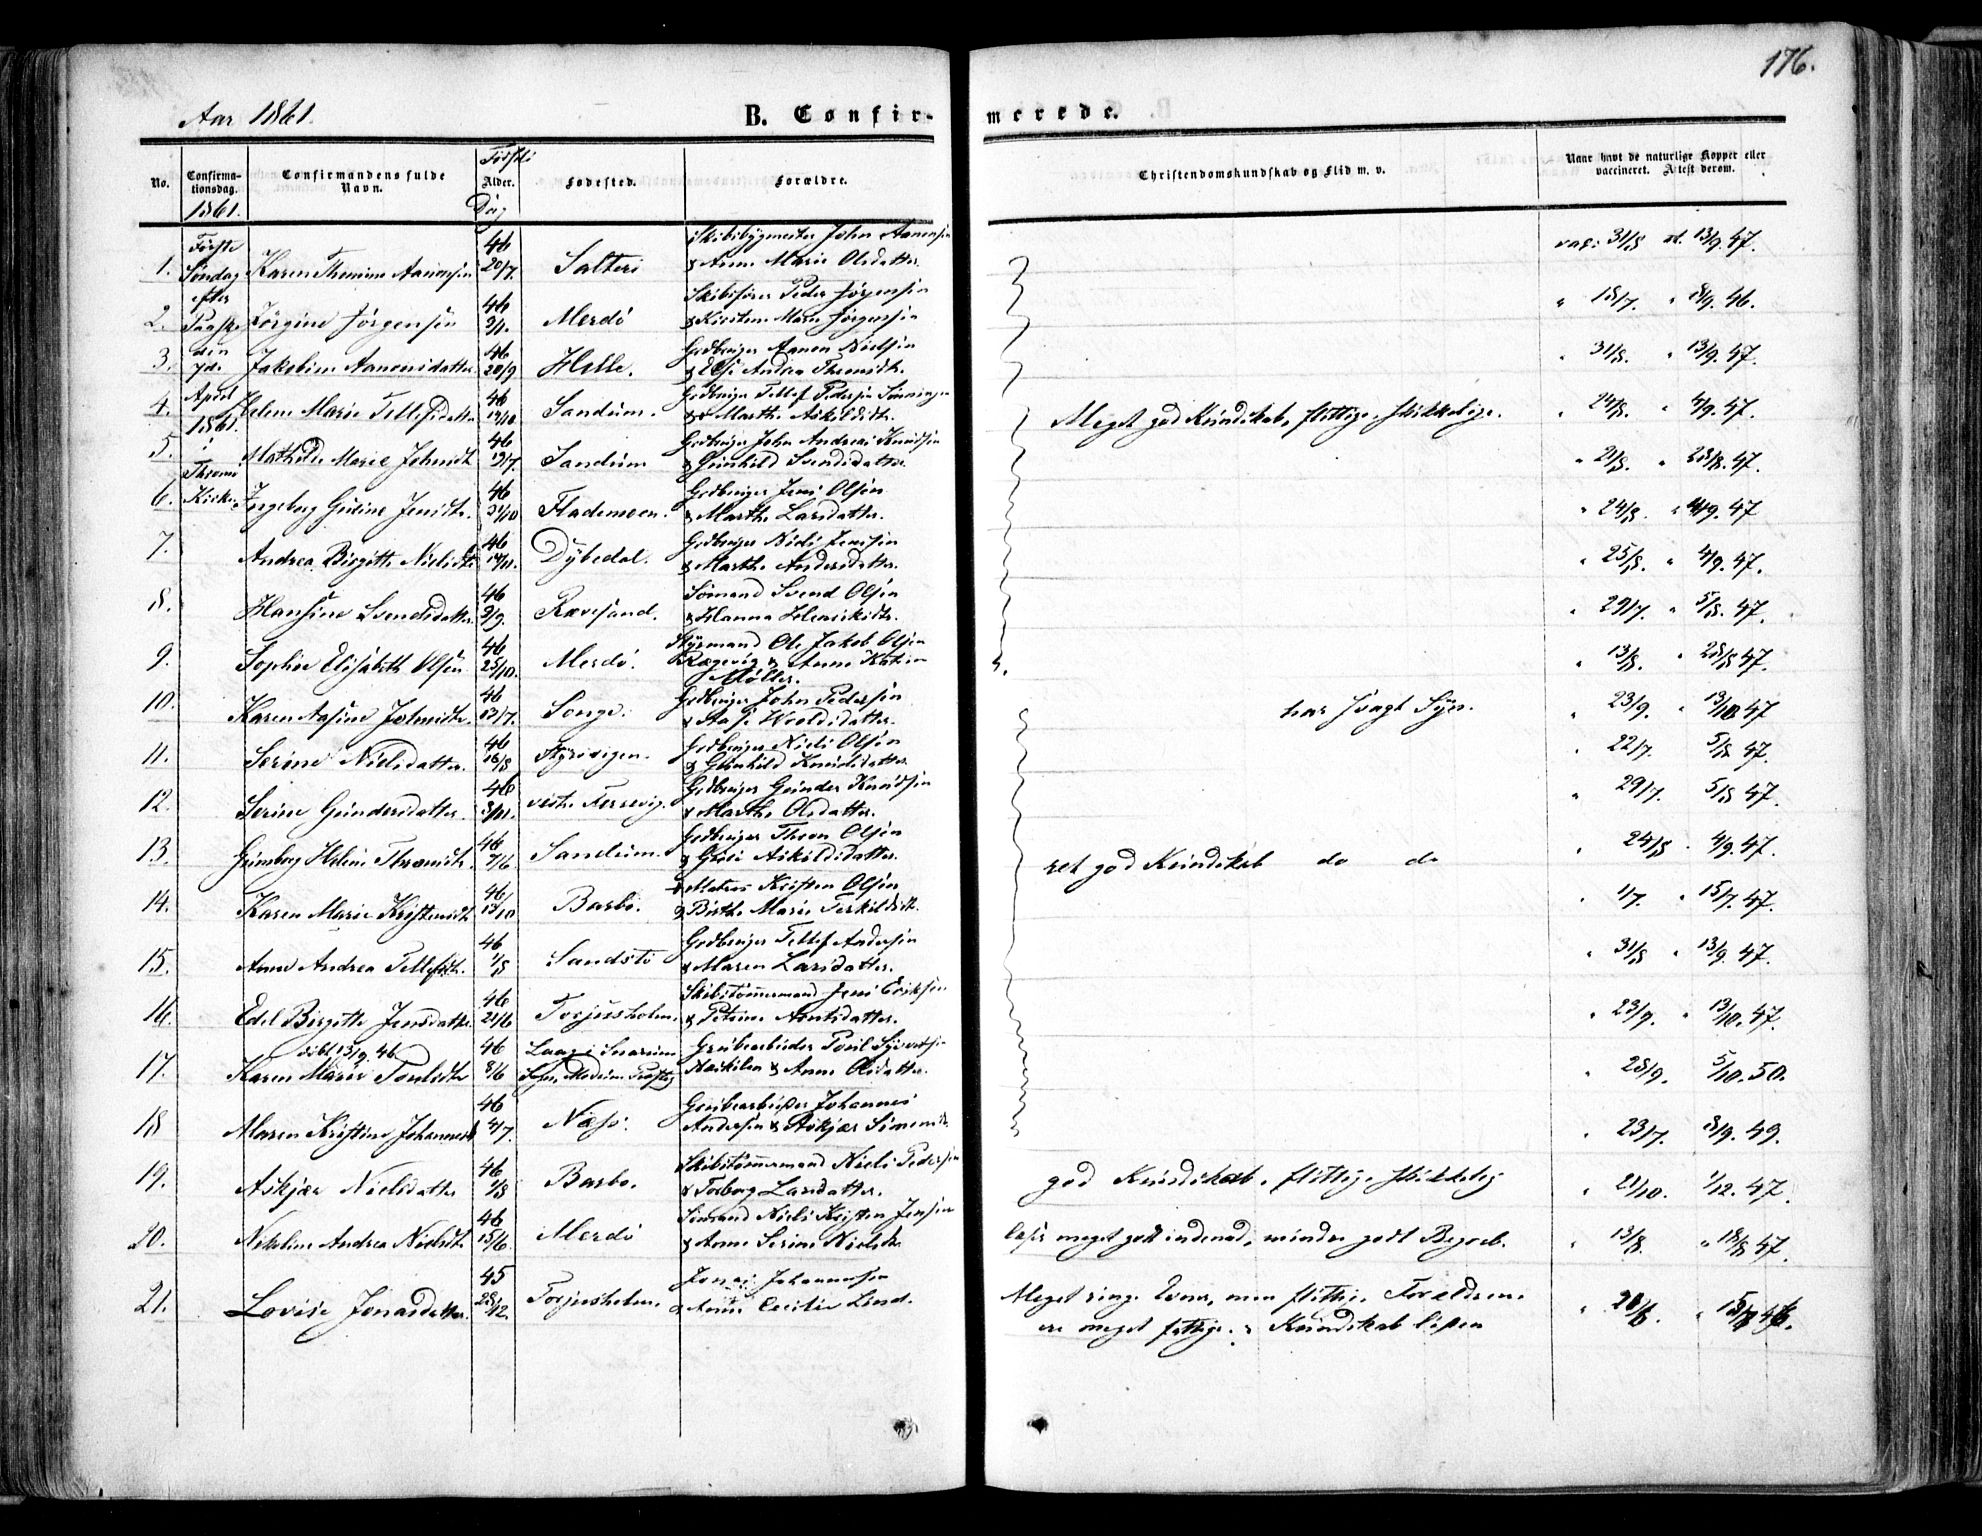 176.
Aar 1861.
B. Confirmerede.
No.
Confirmationsdag.
1861.
Confirmandens fulde Navn.
Alder.
Fødested.
Forældre.
Christendomskundskab og Flid m. v.
Naar havt de naturlige Kopper eller vaccineret. Attest derom.
Første Søndag efter Paaske den 7de April 1861. i Thromø Kirke.
1. Karen Thomine Aanonsen 46 20/7. Salterø Skibsbygmester John Aanonsen & Anne Marie Olsdatter. vac: 31/8 at. 13/9. 47.
2. Jørgine Jørgensen 46 9/1. Merdø Skibsfører Peder Jørgensen & Kirstine Marie Jørgensen " 18/7. " 8/9. 46.
3. Jakobine Aanonsdatter 46 20/9 Hølle. Grdbruger Aanon Nielsen & Else Andrea Thomasdtr. " 31/8. " 13/9. 47.
4. Helene Marie Tellefsdatter 46 19/10 Sandum. Grdbruger Tellef Pedersen & Marthe Askildsdtr. Meget god Kundskab, flittige, skikkelige. " 24/8. " 4/9. 47.
5. Mathilde Marie Johnsdtr. 46 19/7. Sandum Grdbruger John Andreas Knudsen & Gunhild Svendsdatter. " 21/8. " 28/8. 47.
6. Ingeborg Gurine Jensdtr. 46 31/10 Flademoen. Grdbruger Jens Olsen & Marthe Larsdatter. " 24/8. " 4/9. 47
7. Andrea Birgitte Nielsdtr 46 14/11. Dybedal. Grdbruger Niels Jensen & Marthe Andersdatter. " 25/8. " 4/9. 47.
8. Hansine Svendsdatter. 46 9/9. Rævesand. Sømand Svend Olsen & Hanna Henriksdtr. " 29/7. " 5/8. 47.
9. Sophie Elisabeth Olsen 46 25/10. Merdø. Styrmand Ole Jakob Olsen Rægevig & Anne Katrine Møller. " 13/8. " 28/8 47.
10. Karen Aasine Johnsdtr. 46 13/7. Songe. Grdbruger John Pedersen & Aase Wroldsdatter. har svagt Syn. " 23/9. " 13/10 47
11. Serine Nielsdatter. 46 16/8 Skyrvigen. Grdbruger Niels Olsen & Gunhild Knudsdatter " 22/7. 5/8 47.
12. Serine Gundersdatter. 46 3/11. vestre Færrevig. Grdbruger Gunder Knudsen & Marthe Olsdatter. " 29/7. 5/8 47.
13. Gunborg Helene Thronsdtr. 46 7/6 Sandum. Grdbruger Thron Olsen & Guri Askildsdatter. ret god Kundskab do do " 24/8 " 4/9. 47.
14. Karen Marie Kristensdtr 46 13/10 Barbo. Matros Kristen Olsen & Birthe Marie Terkildsdtr. " 1/7. " 15/7. 47.
15. Anne Andrea Tellefsdtr. 46 1/8 Sandstø Grdbruger Tellef Andersen & Maren Larsdatter. " 31/8 " 13/9. 47.
16. Edel Birgitte Jensdatter 46 21/6 Torjusholm. Skibstømmermand Jens Eriksen & Petrine Arntsdatter. " 23/9. " 13/10. 47.
17. døbt 13/9. 46 Karen Marie Poulsdtr 46 8/6 Snarum Sogn, Modum Præstegj. Grubearbeider Poul Syvertsen & Anne Olsdatter. " 28/9. 5/10. 50.
18 Maren Kristine Johannesdtr 46 4/7. Næs. Grubearbeider Johannes Andersen & Askjær Simensdtr. " 23/7. 8/9. 49.
19. Askjær Nielsdatter 46 1/8 Barbo. Skibstømmermand Niels Pedersen & Torborg Larsdatter. god Kundskab, flittig, skikkelig " 21/10. 1/12. 47.
20. Nikoline Andrea Nielsdtr 46 15/6. Merdø Sømand Niels Kristen Jensen & Anne Serine Nielsdtr. læser meget godt indenad, mindre godt Begreb. " 13/8. " 18/8 47.
21. Lovise Jonasdatter. 45 28/12. Torjusholm. Jonas Johannesen & Anne Cecilie Lind. Meget ringe Evner, men flittig. Forældrene ere meget fattige. Kundskab liden